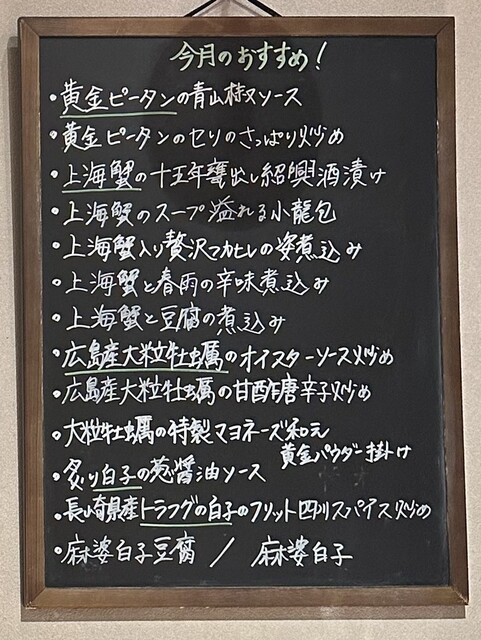 今月のおすすめ!
・黄金ピータンの青山椒ソース
・黄金ピータンのセリのさっぱり炒め
・上海蟹の十五年甕出し紹興酒漬け
・上海蟹のスープ溢れる小龍包
・上海蟹入り贅沢フカヒレの姿煮込み
・上海蟹と春雨の辛味煮込み
・上海蟹と豆腐の煮込み
・広島産大粒牡蠣のオイスターソース炒め
・広島産大粒牡蠣の甘酢唐辛子炒め
・大粒牡蠣の特製マヨネーズ和え
黄金パウダー掛け
・炙り白子の葱醤油ソース
・長崎県産トラフグの白子のフリット四川スパイス炒め
・麻婆白子豆腐 / 麻婆白子